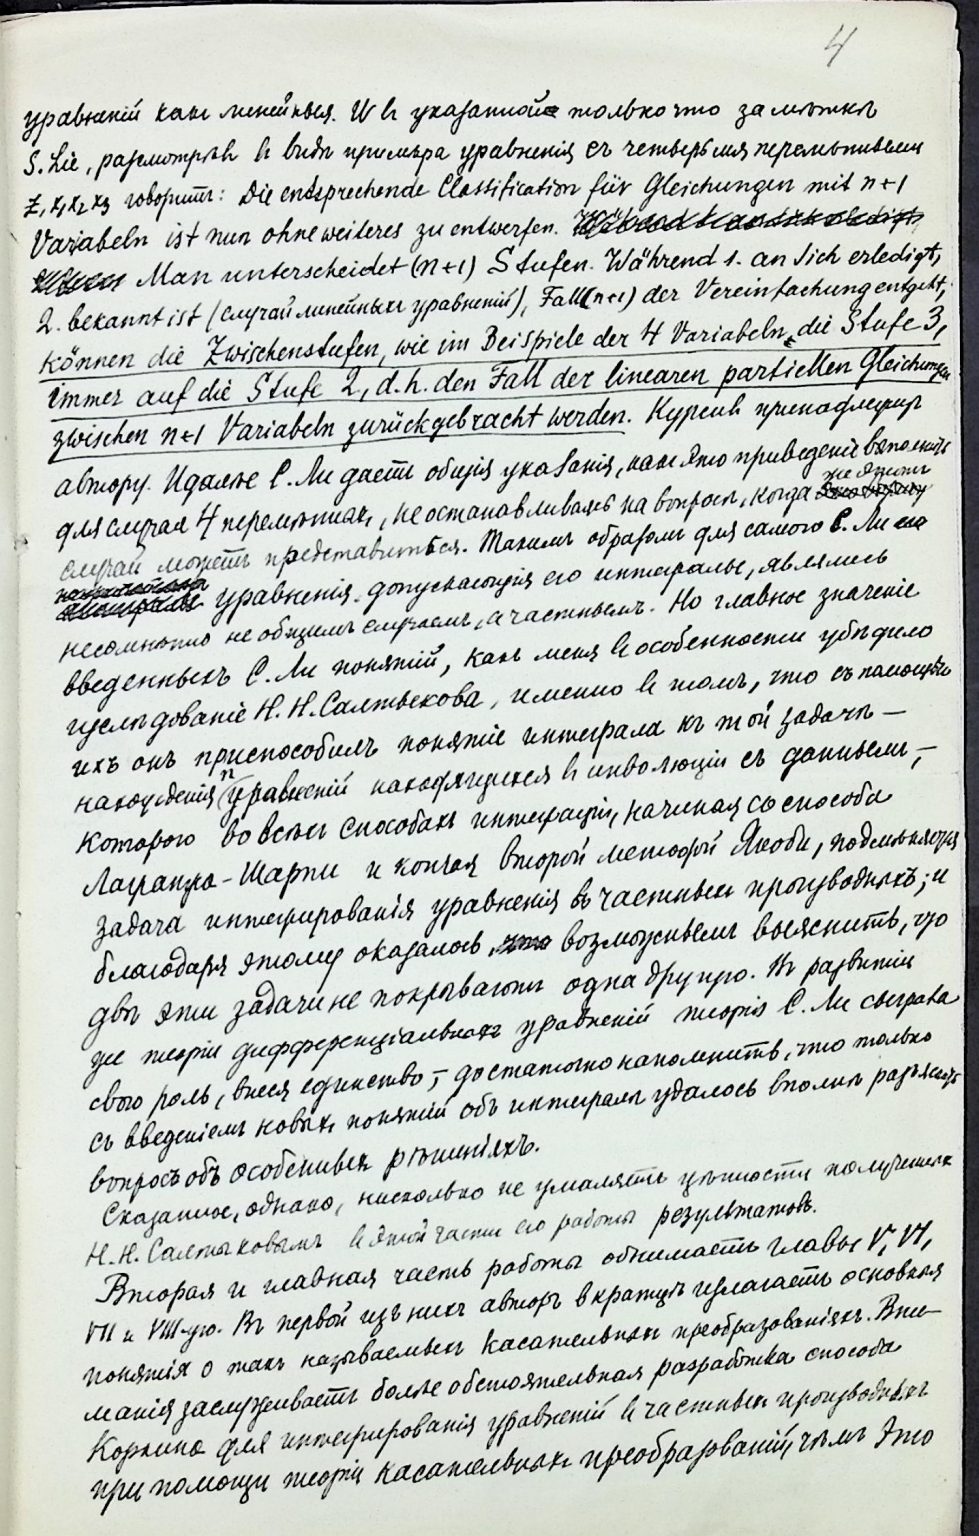 4
уравненій какъ линейныя. И въ указанной только что замѣткѣ
S. Lie, разсмотрѣвъ въ видѣ примѣра уравненія съ четырьмя перемѣнными
z, x₁ x₂ x₃ говоритъ: Die entsprechende Classification für Gleichungen mit n+1
Variabeln ist nun ohne weiteres zu entwerfen.
Man unterscheidet (n+1) Stufen. Während 1. an sich erledigt,
2. bekannt ist (случай линейныхъ уравненій), Fall (n+1) der Vereinfachung entgeht,
können die Zwischenstufen, wie im Beispiele der 4 Variabeln die Stufe 3,
immer auf die Stufe 2, d. h. den Fall der linearen partiellen Gleichungen
zwischen n+1 Variabeln zurückgebracht werden. Курсивъ принадлежитъ
автору. И далѣе С. Ли даетъ общія указанія, какъ это приведеніе выполнить
для случая 4 перемѣнныхъ, не останавливаясь на вопросѣ, когда же этотъ
случай можетъ представиться. Такимъ образомъ для самого С. Ли
уравненія, допускающія его интегралы, являлись
несомнѣнно не общимъ случаемъ, а частнымъ. Но главное значеніе
введенныхъ С. Ли понятій, какъ меня въ особенности убѣдило
изслѣдованіе Н. Н. Салтыкова, именно въ томъ, что съ помощью
ихъ онъ приспособилъ понятіе интеграла къ той задачѣ —
нахожденія n уравненій находящихся въ инволюціи съ даннымъ, —
которою во всѣхъ способахъ интеграціи, начиная со способа
Лагранжа-Шарпи и кончая второй методой Якоби, подмѣняется
задача интегрированія уравненія въ частныхъ производныхъ; и
благодаря этому оказалось возможнымъ выяснить, что
двѣ эти задачи не покрываютъ одна другую. Въ развитіи
же теоріи дифференціальныхъ уравненій теорія С. Ли сыграла
свою роль, внеся единство, — достаточно напомнить, что только
съ введеніемъ новыхъ понятій объ интегралѣ удалось вполнѣ разъяснить
вопросъ объ особенныхъ рѣшеніяхъ.
Сказанное, однако, нисколько не умаляетъ цѣнности полученныхъ
Н. Н. Салтыковымъ въ этой части его работы результатовъ.
Вторая и главная часть работы обнимаетъ главы V, VI,
VII и VIII-ую. Въ первой изъ нихъ авторъ вкратцѣ излагаетъ основныя
понятія о такъ называемыхъ касательныхъ преобразованіяхъ. Вни-
манія заслуживаетъ болѣе обстоятельная разработка способа
Коркина для интегрированія уравненій въ частныхъ производныхъ
при помощи теоріи касательныхъ преобразованій, чѣмъ это